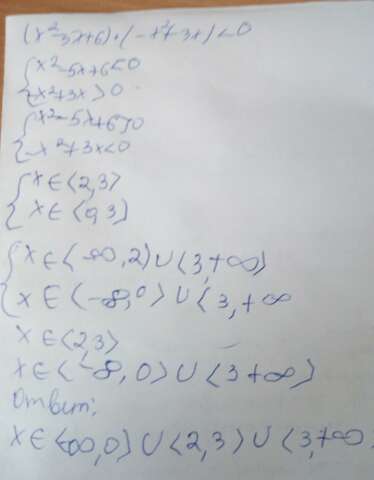 (x²-5x+6)·(-x²+3x)<0
{x²-5x+6<0
-x²+3x>0
{x²-5x+6>0
-x²+3x<0
{x∈<2,3>
x∈<0,3)
{x∈<-∞,2)∪<3,+∞)
x∈<-∞,0)∪<3,+∞
x∈<2,3)
x∈<-∞,0>∪<3+∞>
Ответ:
x∈<-∞,0)∪<2,3)∪<3,+∞.